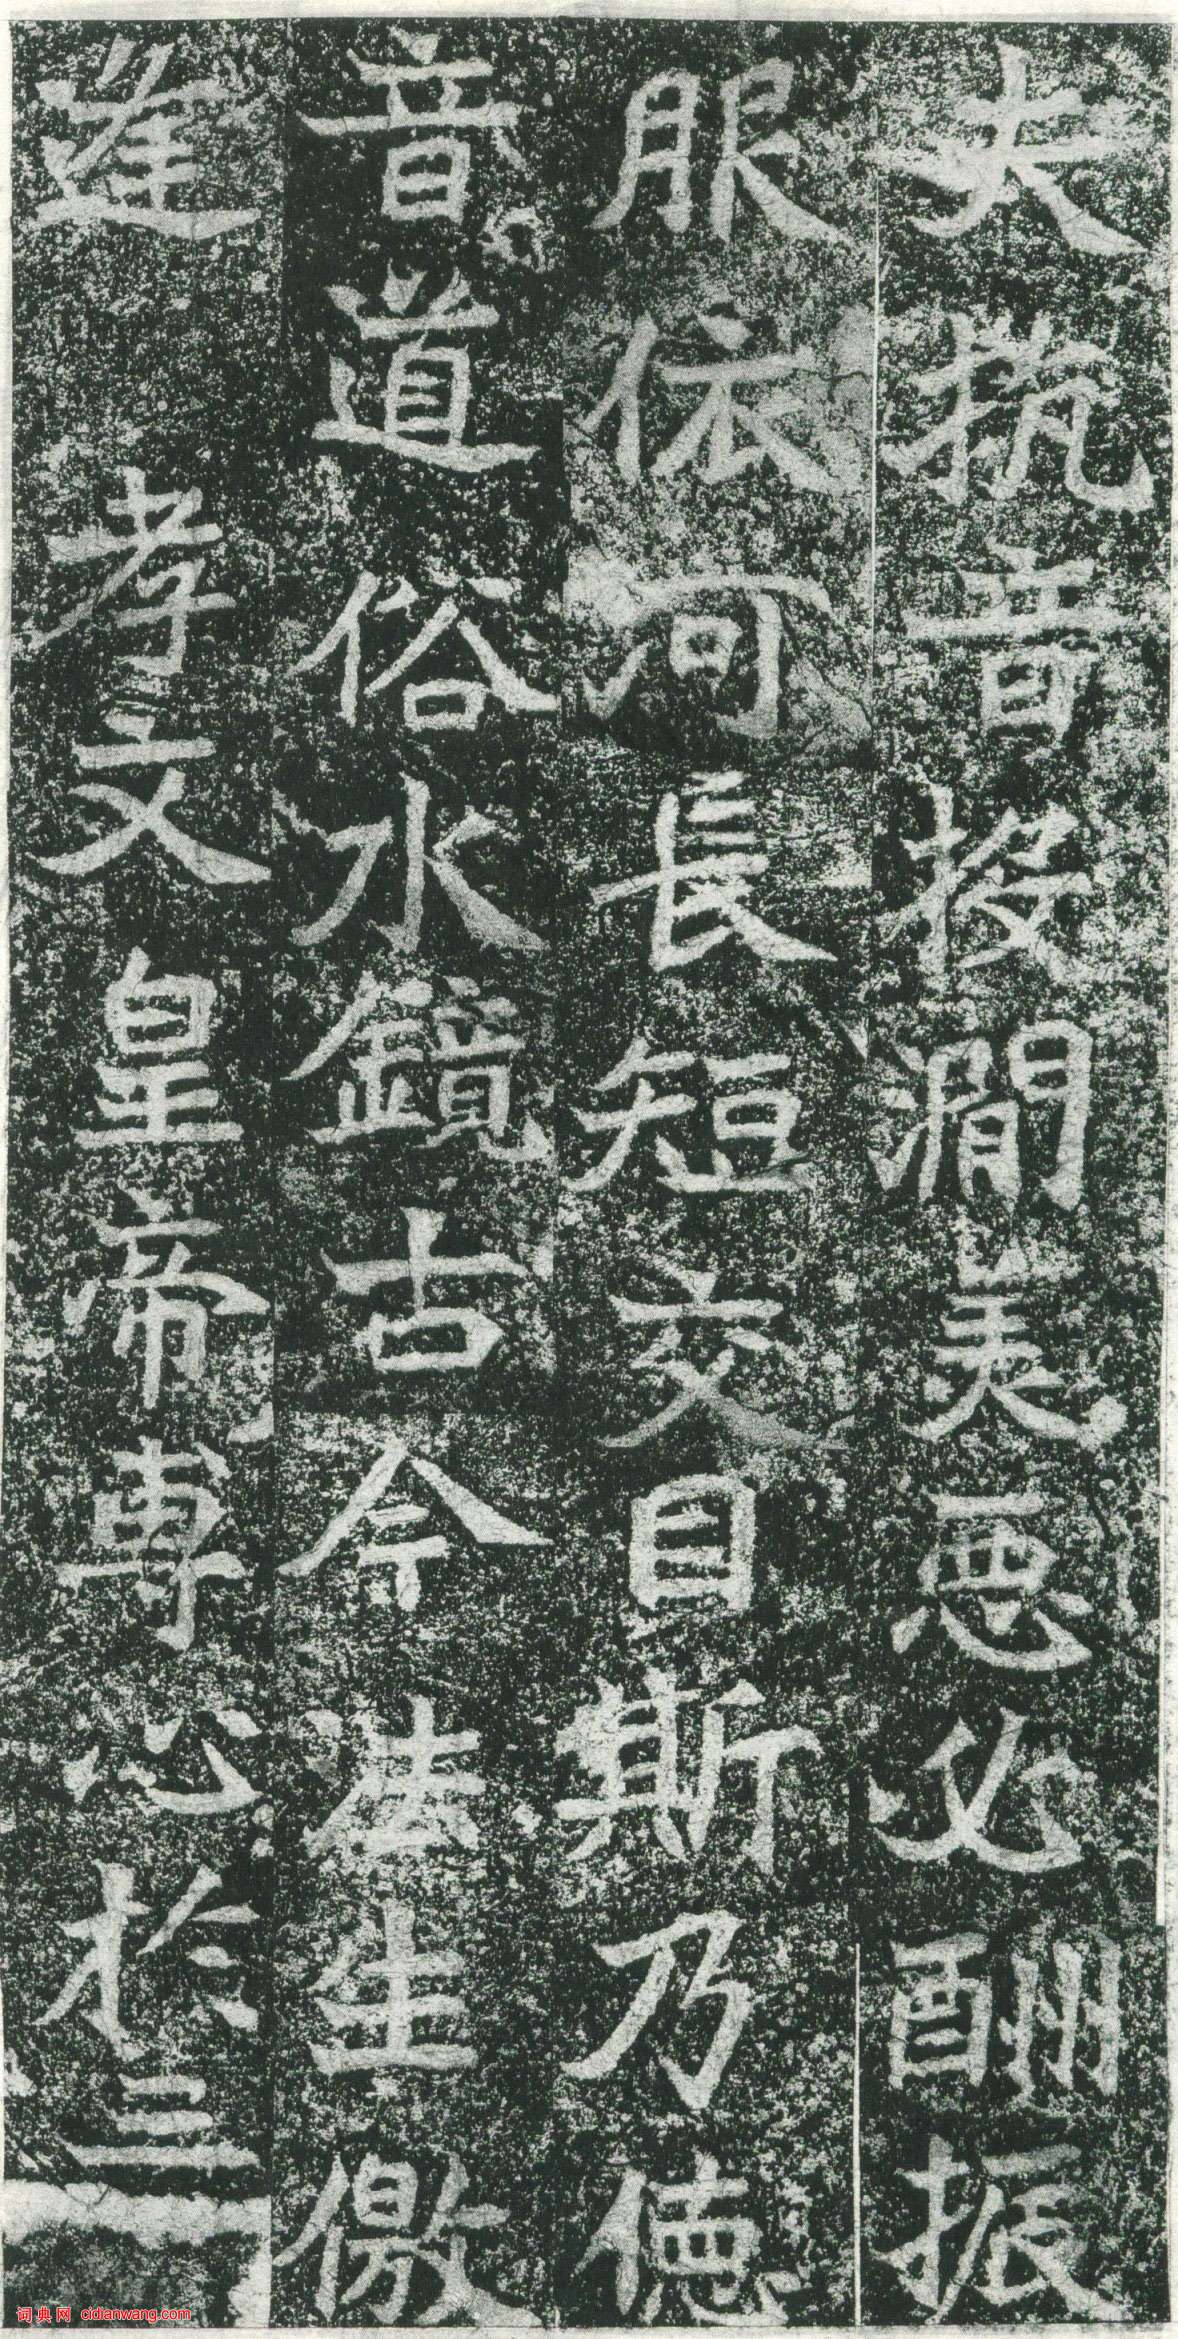 夫抗音投澗美惡必酬振
服依河長短交目斯乃德
音道俗水鏡古今法生儌
逢 孝文皇帝專心於三
词典网 cidianwang.com